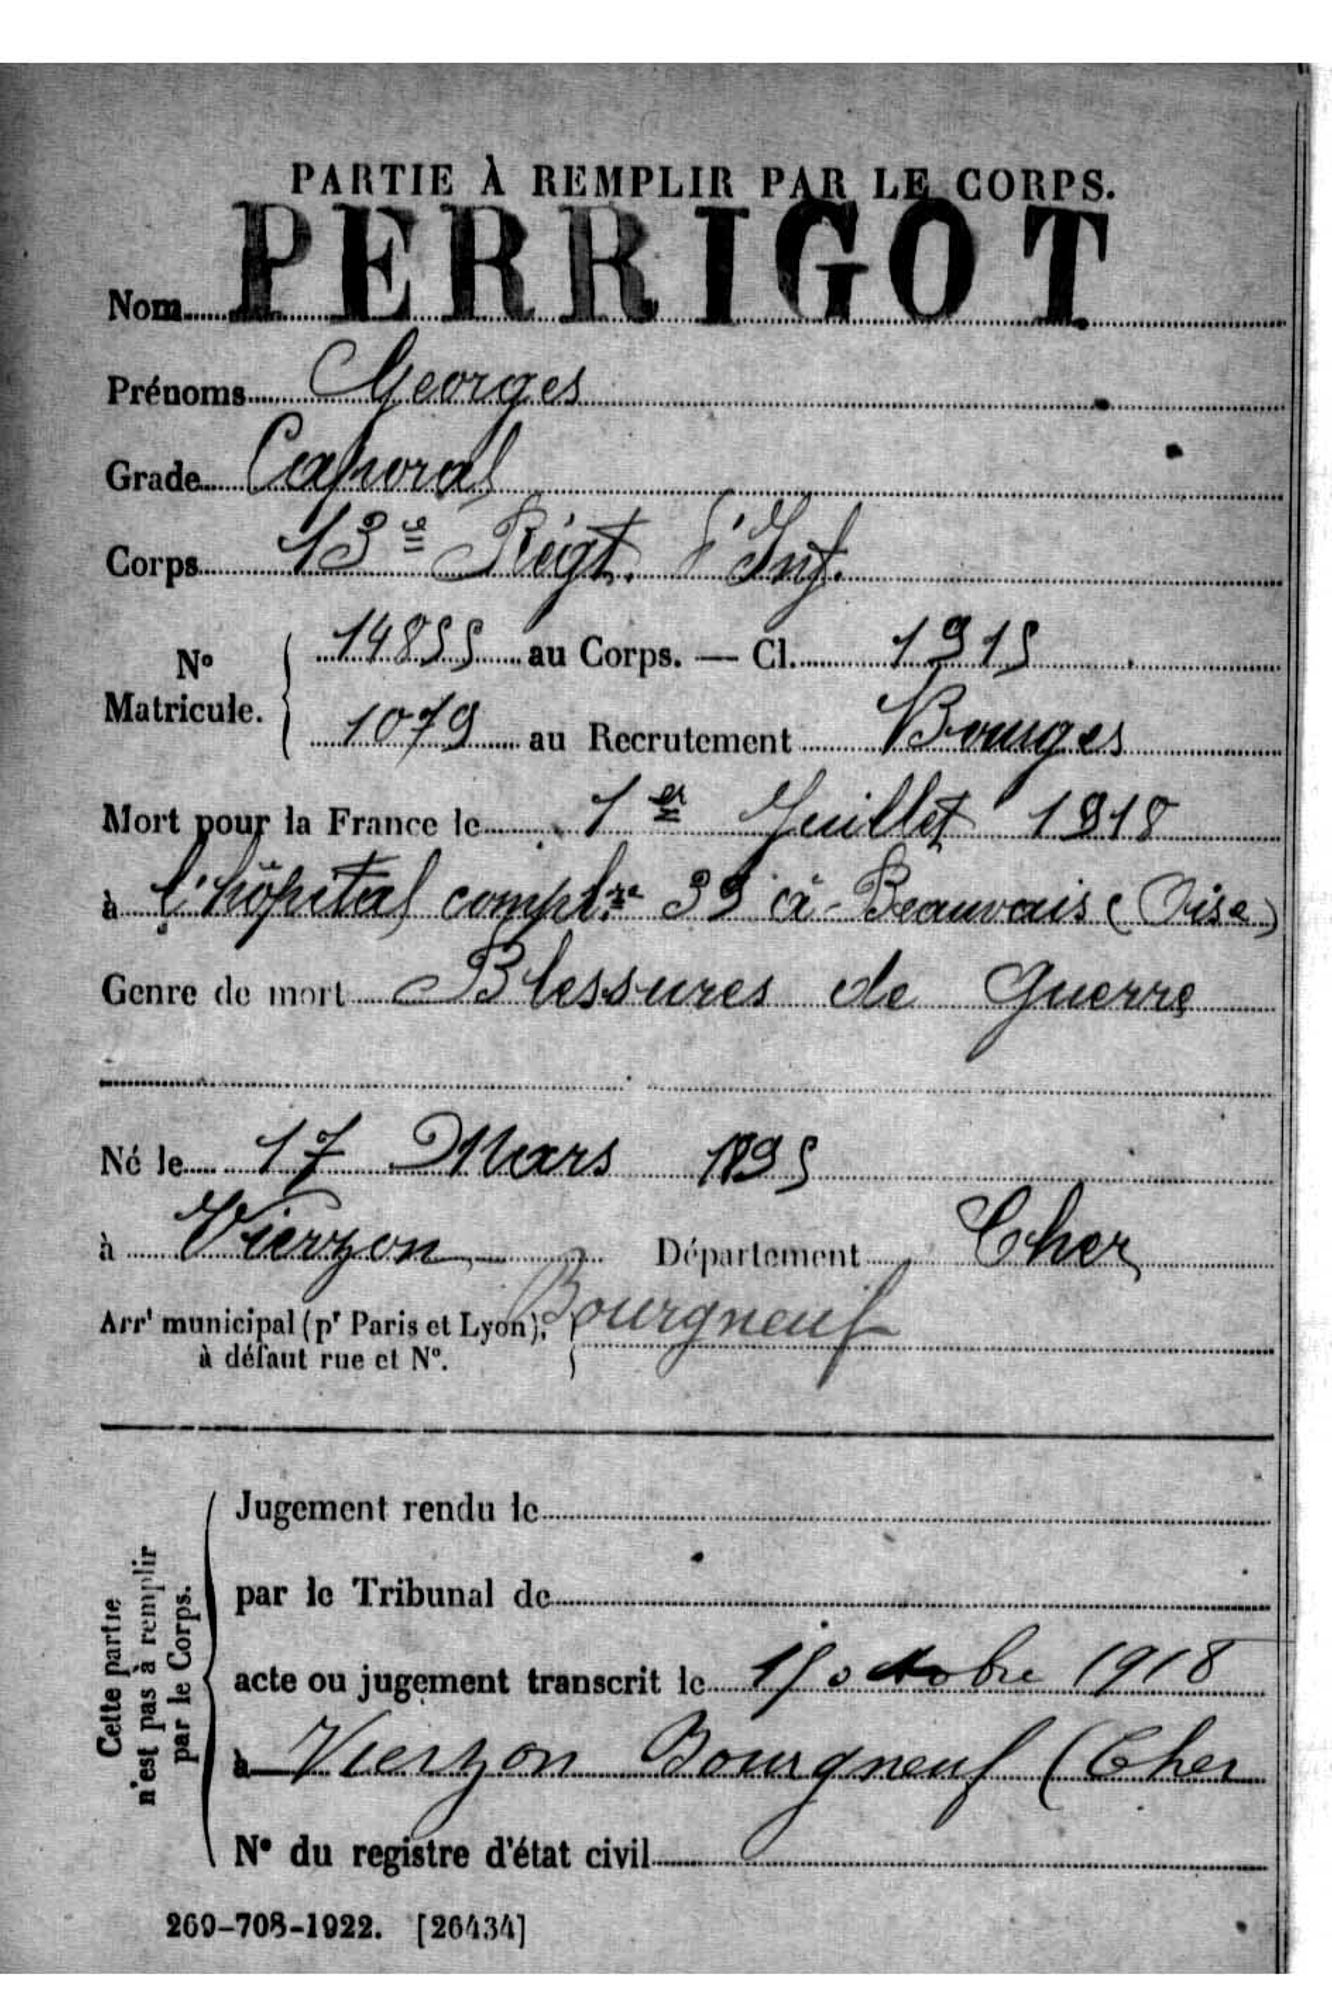 PARTIE À REMPLIR PAR LE CORPS.
Nom PERRIGOT
Prénoms Georges
Grade Caporal
Corps 13e Régt. d'Inf.
N° Matricule. { 14855 au Corps. — Cl. 1915
1079 au Recrutement Bourges
Mort pour la France le 1er Juillet 1918
à l'hôpital complre 33 à Beauvais (Oise)
Genre de mort Blessures de Guerre
Né le 17 Mars 1895
à Vierzon Département Cher
Arrt municipal (pr Paris et Lyon), à défaut rue et N°. } Bourgneuf
Cette partie n'est pas à remplir par le Corps.
Jugement rendu le
par le Tribunal de
acte ou jugement transcrit le 15 octobre 1918
à Vierzon Bourgneuf (Cher
N° du registre d'état civil
269-708-1922. [26434]